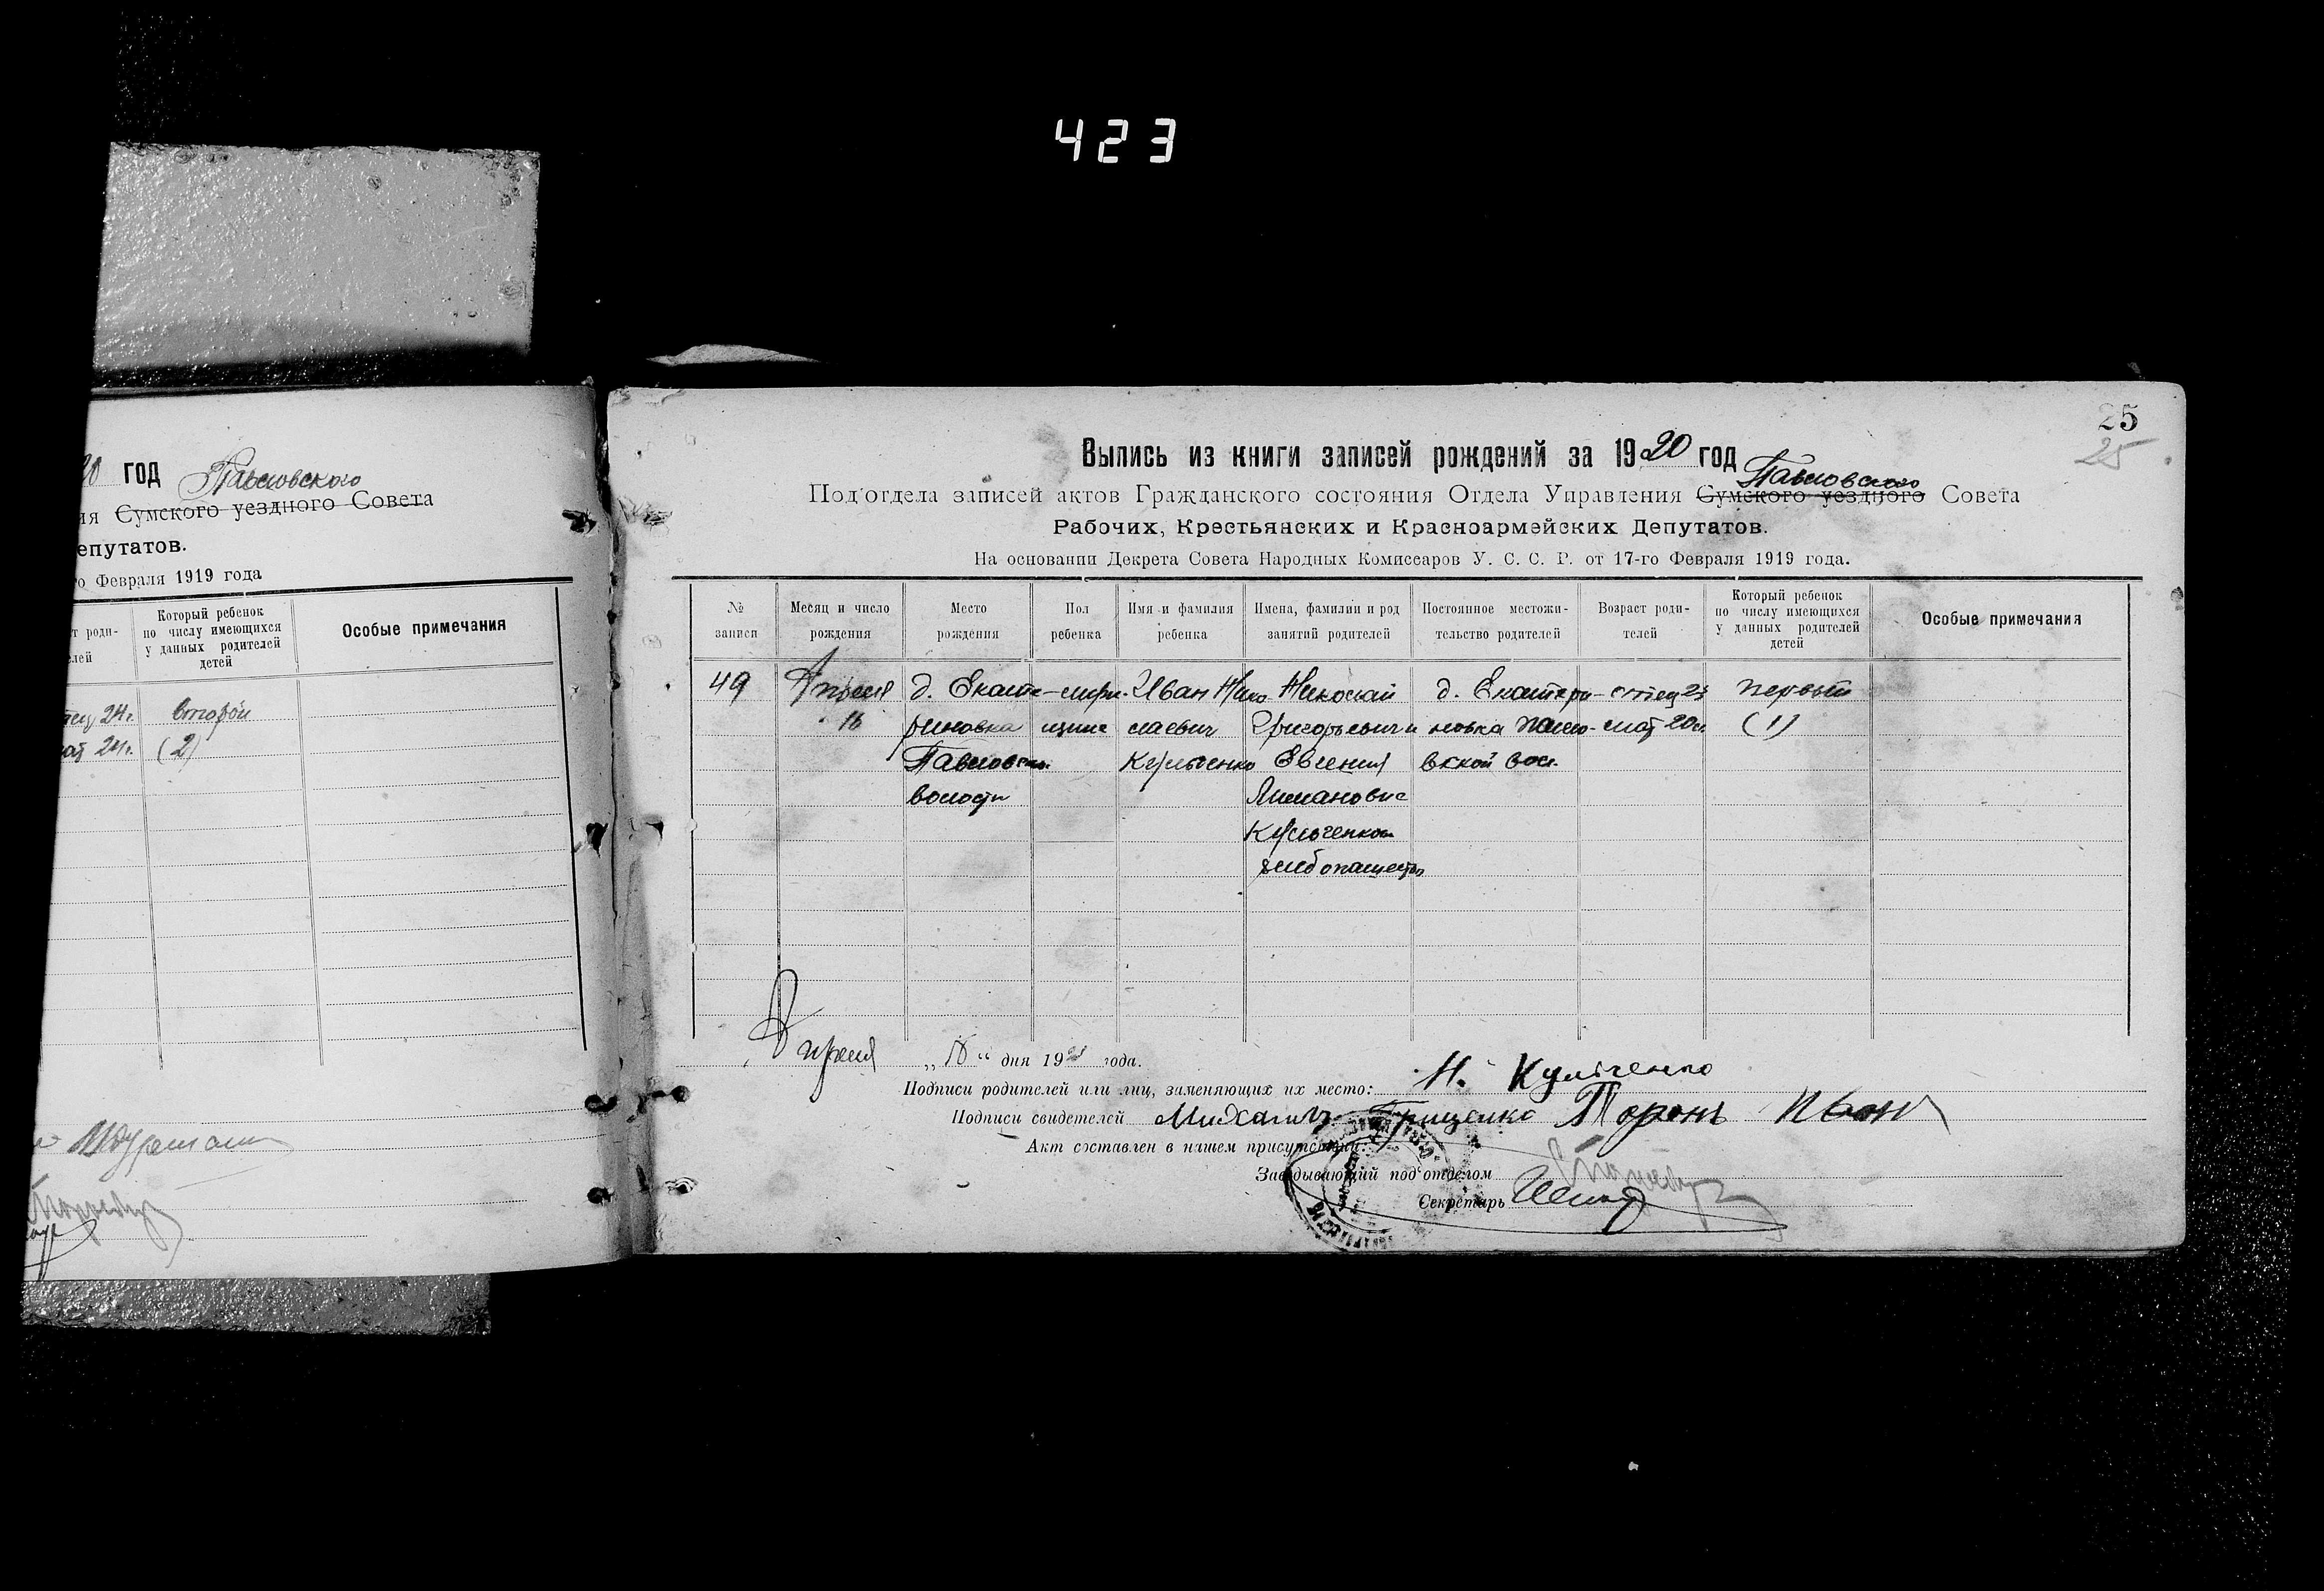 423
20 год Павловского
ия Сумского уездного Совета
епутатов.
го Февраля 1919 года
т роди-
елей
Который ребенок
по числу имеющихся
у данных родителей
детей
Особые примечания
тец 24 г. второй
мат 24 г. (2)
25
25
Выпись из книги записей рождений за 1920 год
Павловского
Под'отдела записей актов Гражданского состояния Отдела Управления Сумского уездного Совета
Рабочих, Крестьянских и Красноармейских Депутатов.
На основании Декрета Совета Народных Комиссаров У. С. С. Р. от 17-го Февраля 1919 года.
№
записи
Месяц и число
рождения
Место
рождения
Пол
ребенка
Имя и фамилия
ребенка
Имена, фамилии и род
занятий родителей
Постоянное местожи-
тельство родителей
Возраст роди-
телей
Который ребенок
по числу имеющихся
у данных родителей
детей
Особые примечания
49
Апреля
16
д. Екате-
риновка
Павловск.
волости
Иван Нико
лаевич
Кульченко
Николай
Григорьевич и
Евгения
Кульченко
д. Екатери-
новка Павло-
вской вол.
отец 23
мат 20 л.
первый
(1)
Апреля „18“ дня 1920 года.
Подписи родителей или лиц, заменяющих их место: Н. Кульченко
Подписи свидетелей Михаилъ Грищенко
Акт составлен в нашем присутствии:
Заведывающий под'отделом
Секретарь